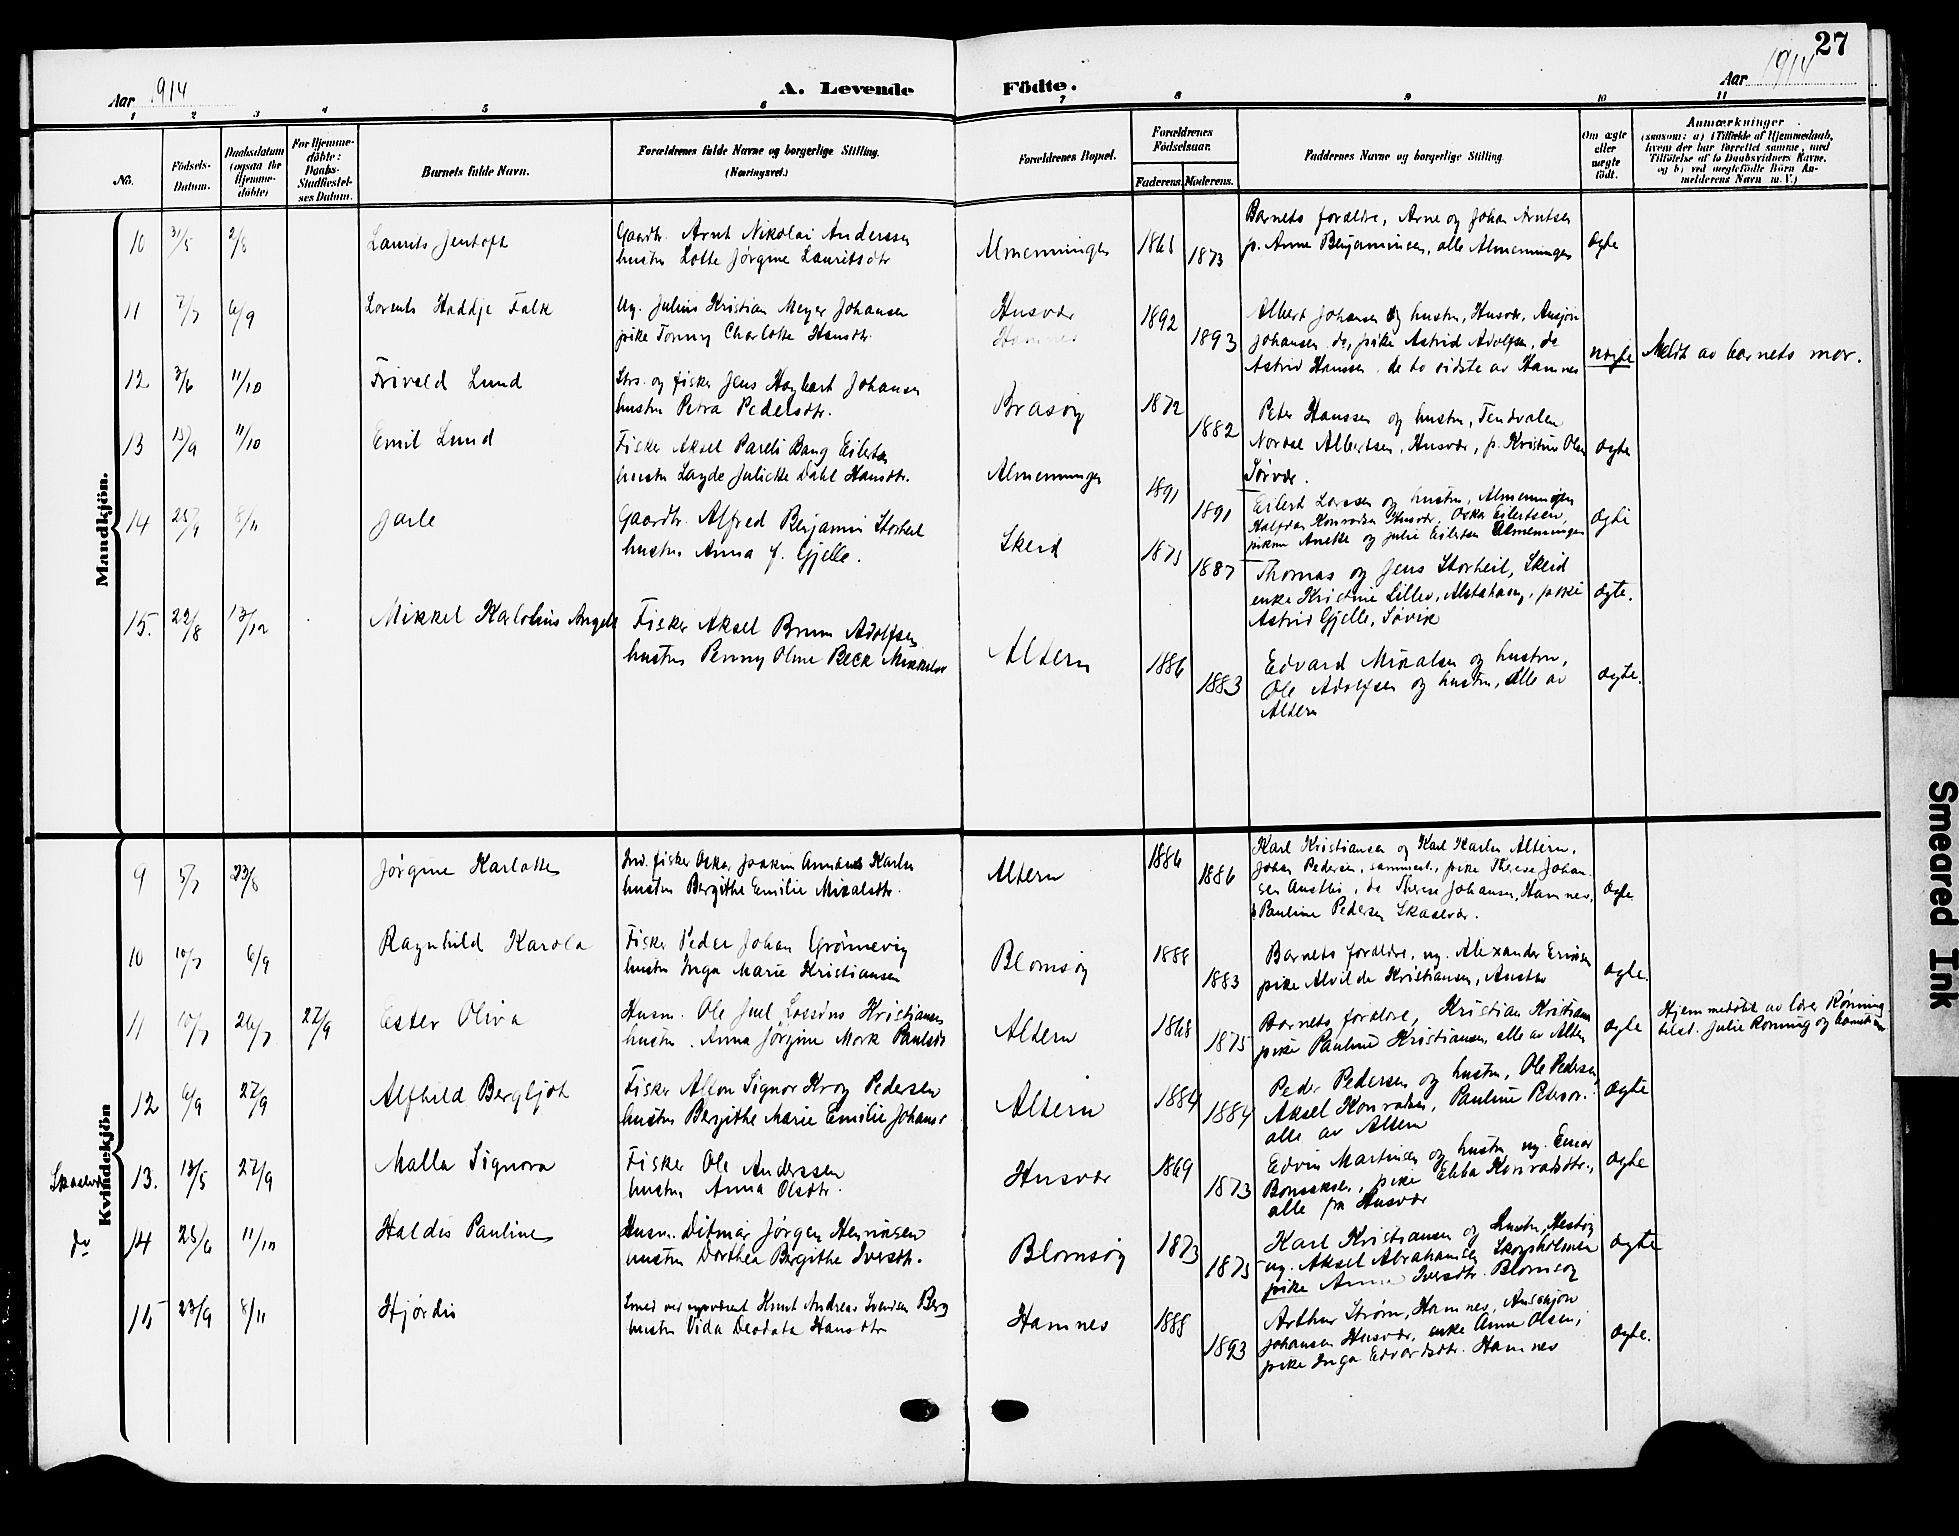 27
Aar 1914
A. Levende Födte.
Aar 1914
1 2 3 4 5 6 7 8 9 10 11
No.
Födsels-Datum.
Daabsdatum (ogsaa for Hjemmedöbte)
For Hjemmedöbte: Daabs-Stadfæstelses Datum.
Barnets fulde Navn.
Forældrenes fulde Navne og borgerlige Stilling.
(Næringsvei.)
Forældrenes Bopæl.
Forældrenes Födselsaar.
Faderens. Moderens.
Faddernes Navne og borgerlige Stilling.
Om ægte eller uægte födt.
Anmærkninger
(saasom: a) i Tilfælde af Hjemmedaab, hvem der har forrettet samme, med Tilföielse af to Daabsvidners Navne, og b) ved uægtefödte Börn Anmelderens Navn m. V.)
Mandkjön.
10 31/5 2/8 Laurits Jentoft
Gaardbr. Arnt Nikolai Anderssen
hustru Lotte Jørgine Lauritsdtr
Almenningen 1865 1873
Barnets forældre, Arne og Johan Arntsen
p. Anne Benjaminsen, alle Almenningen
ægte
11 7/7 6/9 Lorents Haddje Falk
Ug. Julius Kristian Meyer Johansen
pike Tonny Charlotte Hansdtr.
Husvær
Hamnes
1892 1893
Albert Johansen og hustru, Husvær, Ansjøn
Johansen do, pike Astrid Adolfsen, do
Astrid Hanssen de to sidste av Hamnes
uægte
Meldt av barnets mor.
12 3/6 11/10 Frivald Lund
Strs. og fisker Jens Hagbart Johansen
hustru Petra Pedersdtr.
Brasøy 1872 1882
Peter Hanssen og hustru, Tendvalen
Nordal Albertsen, Husvær, p. Kristine Olsen
Sørvær.
ægte
13 13/9 11/10 Emil Lund
Fisker Aksel Pareli Bang Eilertsen
hustru Layde Juliette Dahl Hansdtr.
Almenningen 1891 1891
Eilert Larssen og hustru, Almenningen
Halfdan Konradsen Husvær, Oskar Eilertsen,
pikene Anette og Julie Eilertsen Almenningen
ægte
14 25/9 8/11 Jarle
Gaardbr. Alfred Benjamin Storheil
hustru Anna f. Gjelle.
Skeid 1875 1887
Thomas og Jens Storheil, Skeid
enke Kristine Lillev, Alstahaug, pike
Astrid Gjelle, Søvik
ægte.
15. 22/8 13/12 Mikkel Karlolius Angell
Fisker Aksel Bruun Adolfsen
hustru Penny Oline Beck Mikkelsdr
Altern 1886 1883
Edvard Mikalsen og hustru,
Ole Adolfsen og hustru, alle av
Altern
ægte.
Kvindekjön
9 5/7 23/8 Jørgine Karlotte
Ind. fisker Oskar Joakim Annanias Karlsen
hustru Bergithe Emilie Mikalsdtr.
Altern 1886 1886
Karl Kristiansen og Karl Karlsen Altern,
Johan Pedersen, sammest., pike Therese Johansen
Austbø, do Therese Johansen, Hamnes,
p Pauline Pedersen Skaalvær.
ægte
10 10/7 6/9 Ragnhild Karola
Fisker Peder Johan Grønnevig
hustru Inga Marie Kristiansen
Blomsøy 1888 1883
Barnets forældre, ug. Alexander Eriksen
pike Alvilde Kristiansen, Austbø
ægte.
11 10/7 26/7 27/9 Ester Oliva
Husm. Ole Juel Lassius Kristiansen
hustru. Anna Jørgine Mork Paulsdr
Altern 1868 1875
Barnets forældre, Kristian Kristiansen
pike Pauline Kristiansen, alle av Altern
ægte
Hjemmedøbt av lærer Rønning
tilst. Julie Rønning og barnets mor
12 6/9 27/9 Alfhild Bergljot
Fisker Alton Signor Krog Pedersen
hustru Bergithe Marie Emilie Johansdr
Altern 1884 1884
Peder Pedersen og hustru, Ole Pedersen,
Aksel Konradsen, Pauline Peterson.
alle av Altern
ægte
Skaalvær 13. 13/5 27/9 Malla Signora
Fisker Ole Anderssen
hustru Anna Olsdtr.
Husvær 1869 1873
Edvin Martinsen og hustru, ug. Einar
Bonsaksen, pike Ebba Konradsdtr.,
alle fra Husvær
ægte
do 14 25/6 11/10 Haldis Pauline
Husm. Ditmar Jørgen Henriksen
hustru Dorthea Bergithe Iversdtr.
Blomsøy 1873 1875
Karl Kristiansen og hustru, Hestøy
ug. Aksel Abrahamsen Skogsholmen
pike Anna Iversdtr. Blomsøy
ægte
15 23/9 8/11 Hjørdis
Smed ved opsværet Knut Andreas Svendsen Berg
hustru Vida Deodata Hansdtr
Hamnes 1888 1893
Arthur Strøm, Hamnes, Ansgjøn
Johansen Husvær, enke Anna Olsen,
pike Inga Edvardsdtr. Hamnes
ægte.
Smeared Ink